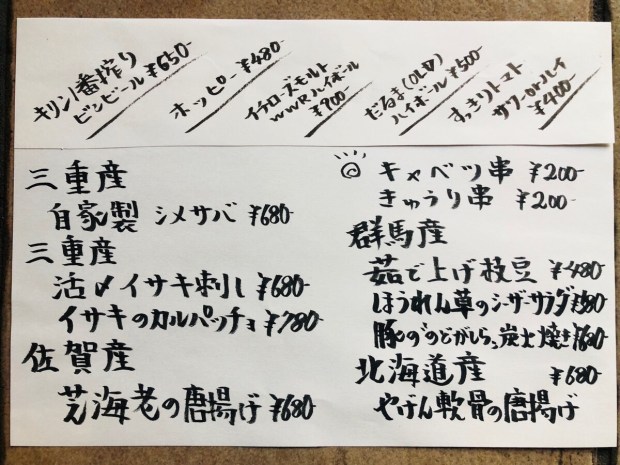 キリン一番搾り
ビンビール ¥650-
ホッピー ¥480-
イチローズモルト
WWRハイボール
¥900-
だるま(OLD)
ハイボール ¥500-
すっきりトマト
サワーorハイ
¥400-
三重産
自家製 シメサバ ¥680-
三重産
活〆イサキ刺し ¥680-
イサキのカルパッチョ ¥780-
佐賀産
芝海老の唐揚げ ¥680-
◎ キャベツ串 ¥200-
きゅうり串 ¥200-
群馬産
茹で上げ枝豆 ¥480-
ほうれん草のシーザーサラダ ¥580-
豚の"のどがしら"炭火焼き ¥680-
北海道産 ¥680-
やげん軟骨の唐揚げ